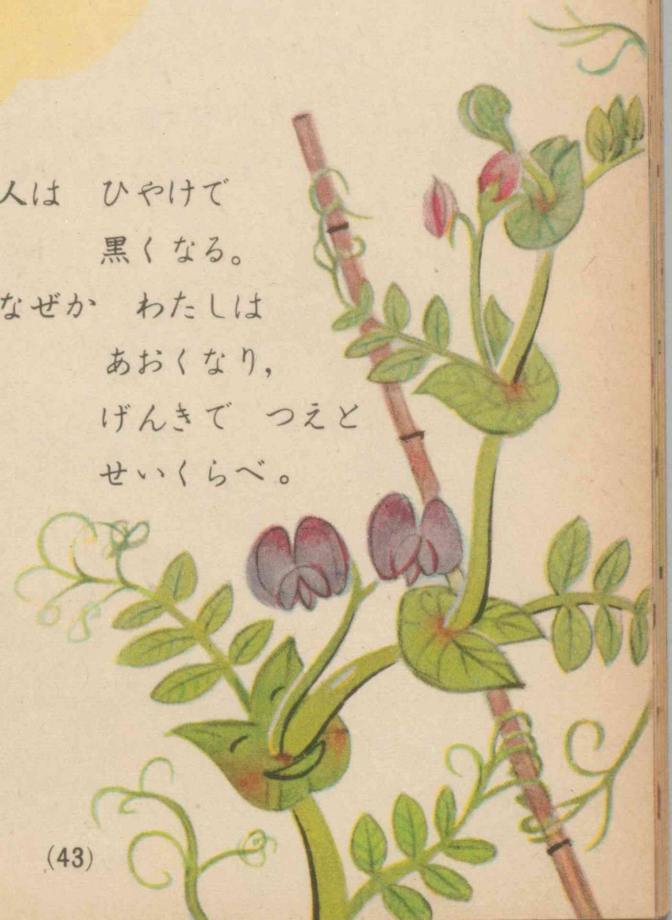 人は　ひやけで
黒くなる。
なぜか　わたしは
あおくなり，
げんきで　つえと
せいくらべ。
(43)